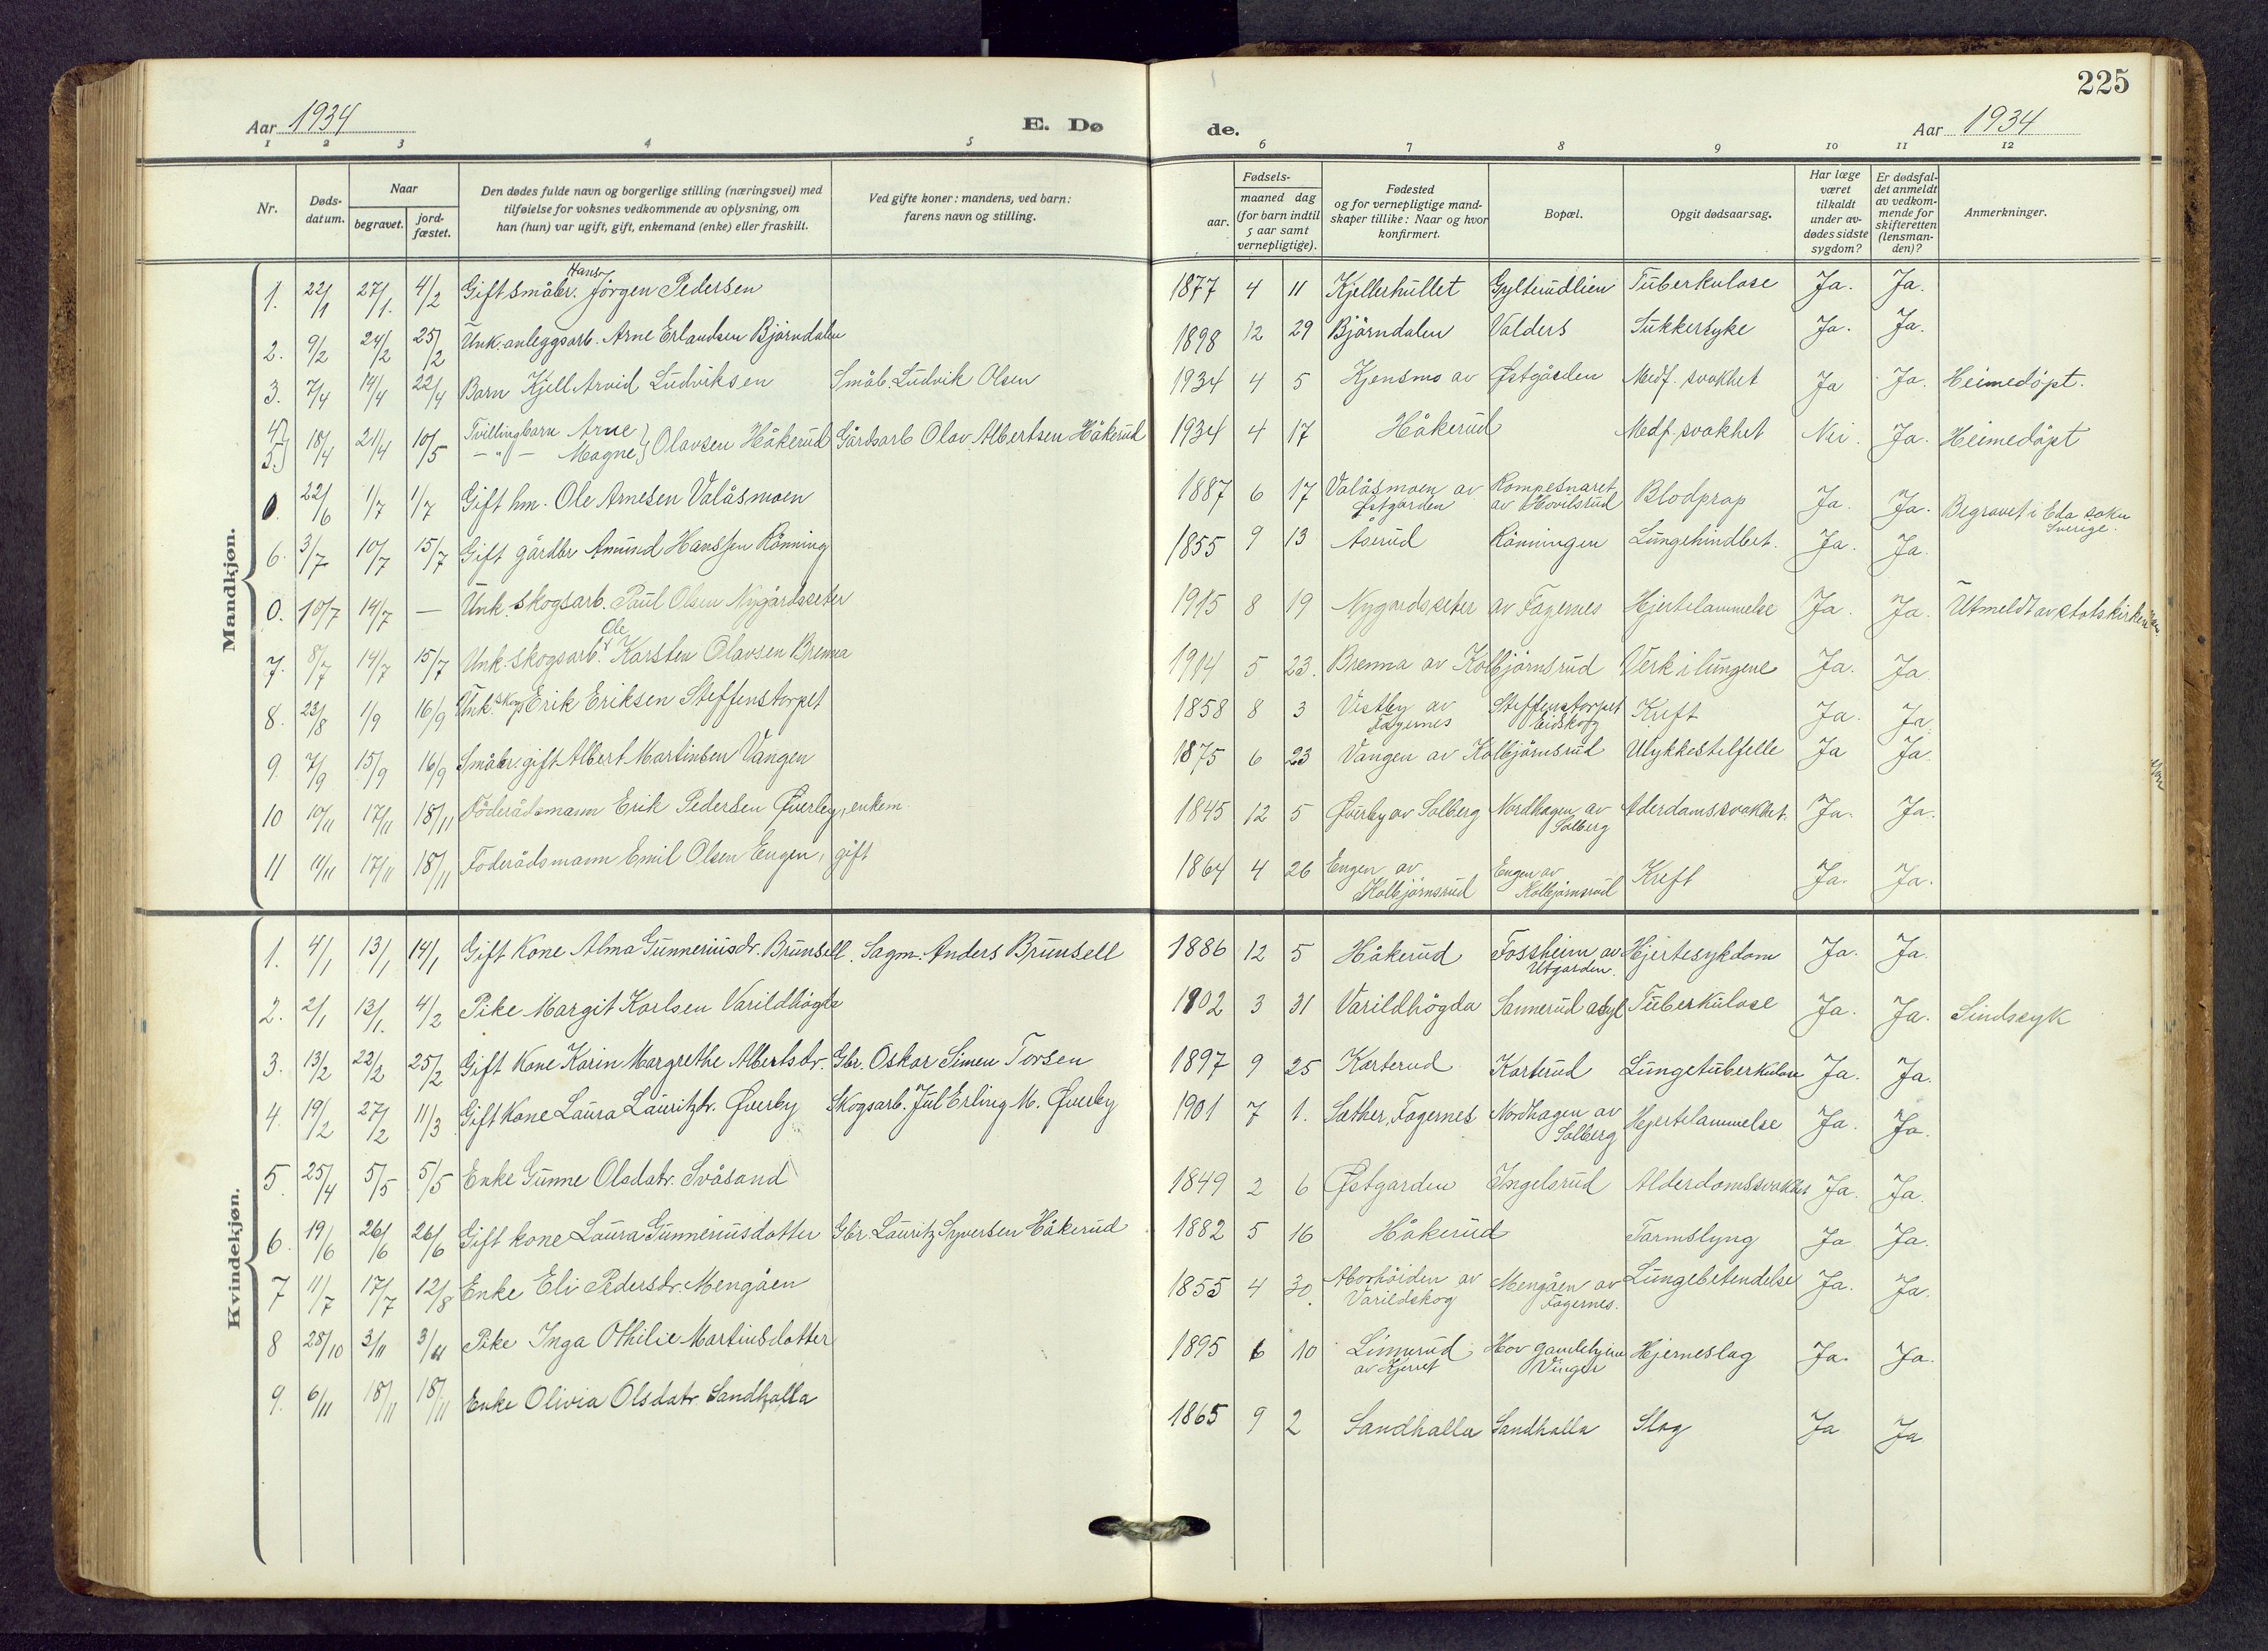 225
Aar 1934
E. Dø
de.
Aar 1934
1 2 3 4 5 6 7 8 9 10 11 12
Nr.
Døds-datum.
Naar
begravet.
jord-fæstet.
Den dødes fulde navn og borgerlige stilling (næringsvei) med tilføielse for voksnes vedkommende av oplysning, om han (hun) var ugift, gift, enkemand (enke) eller fraskilt.
Ved gifte koner: mandens, ved barn: farens navn og stilling.
Fødsels-
aar.
maaned dag
(for barn indtil 5 aar samt vernepligtige).
Fødested og for vernepligtige mandskaper tillike: Naar og hvor konfirmert.
Bopæl.
Opgit dødsaarsag.
Har læge været tilkaldt under avdødes sidste sygdom?
Er dødsfaldet anmeldt av vedkommende for skifteretten (lensmanden)?
Anmerkninger.
Mandkjøn.
1. 22/1 27/1. 4/2 Gift småbr. Hans Jörgen Pedersen 1877 4 11 Kjellerhullet Gylterudlien Tuberkulose Ja. Ja.
2. 9/2 24/2 25/2 Unk. anleggsarb. Arne Erlandsen Björndalen 1898 12 29 Björndalen Valders Sukkersyke Ja. Ja.
3. 7/4 14/4 22/4 Barn Kjell Arvid Ludviksen Småb. Ludvik Olsen 1934 4 5 Kjensmo av Østgården Medf. svakhet Ja Ja. Heimedöpt.
4) 5.) 18/4 21/4 10/5 Tvillingbarn Arne - " - Magne } Olavsen Håkerud Gårdsarb Olav Albertsen Håkerud 1934 4 17 Håkerud Medf. svakhet Nei. Ja. Heimedöpt
0. 22/6 1/7 1/7 Gift hm. Ole Arnesen Valåsmoen 1887 6 17 Valåsmoen av Østgarden Rompesnaret av Hovilsrud Blodprop Ja. Ja. Begravet i Eda sokn Sverige.
6. 3/7 10/7 15/7 Gift gårdbr Amund Hanssen Rönning 1855 9 13 Åserud Rönningen Lungehindbet. Ja. Ja.
0. 10/7 14/7 — Unk. skogsarb. Paul Olsen Nygårdseter 1915 8 19 Nygardseter av Fagernes Hjertelammelse Ja. Ja. Utmeldt av statskirken
7. 8/7 14/7 15/7 Unk. skogsarb. Ole Karsten Olavsen Brenna 1914 5 23. Brenna av Kolbjörnsrud Verk i lungene Ja. Ja.
8. 23/8 1/9 16/9 Unk. skogs Erik Eriksen Steffenstorpet 1858 8 3 Vestby av Fagernes Steffenstorpet Eidskog Kreft Ja. Ja
9 7/9 15/9 16/9 Småbr. gift Albert Martinsen Vangen 1875 6 23 Vangen av Kolbjörnsrud Ulykkestilfelle Ja Ja.
10 10/11 17/11 18/11 Föderådsmann Erik Pedersen Øverby, enkem. 1845 12 5 Øverby av Solberg Nordhagen av Solberg Alderdomssvakhet. Ja. Ja.
11 11/11 17/11 18/11 Föderådsmann Emil Olsen Engen, gift 1864 4 26 Engen av Kolbjörnsrud Engen av Kolbjörnsrud Kreft Ja. Ja.
Kvindekjøn.
1. 4/1 13/1 14/1 Gift Kone Alma Gunneriusdr. Brunsell. Sagm. Anders Brunsell 1886 12 5 Håkerud Fossheim av Utgarden. Hjertesykdom Ja. Ja.
2. 2/1 13/1. 4/2 Pike Margit Karlsen Varildhögda 1902 3 31 Varildhögda Sannerud asyl Tuberkulose Ja. Ja. Sindssyk
3. 13/2 22/2 25/2 Gift Kone Karin Margrethe Albertsdr. Gbr. Oskar Simen Torsen 1897 9 25 Karterud Karterud Lungetuberkulose Ja. Ja.
4. 19/2 27/2 11/3 Gift Kone Laura Lauritzdr. Øverby Skogsarb. Jul Erling M. Øverby 1901 7 1. Sæther, Fagernes Nordhagen av Solberg Hjertelammelse Ja. Ja.
5. 25/4 5/5 5/5 Enke Gunne Olsdatr. Svåsand 1849 2 6 Østgarden Ingelsrud Alderdomssvakhet Ja. Ja.
6. 19/6 26/6 26/6 Gift kone Laura Gunneriusdatter Gbr. Lauritz Syversen Håkerud 1882 5 16 Håkerud Tarmslyng Ja Ja.
7 11/7 17/7 12/8 Enke Eli Pedersdr. Mengåen 1855 4 30. Varildskog Mengåen av Fagernes. Lungebetendelse Ja. Ja.
8 28/10 3/11 3/11 Pike Inga Othilie Martinsdatter 1895 6 10 Linnerud av Kjerret Hov gamlehjem Vinger Hjerneslag Ja. Ja.
9. 6/11 18/11 18/11 Enke Olivia Olsdatr. Sandhalla 1865 9 2 Sandhalla Sandhalla Slag Ja Ja